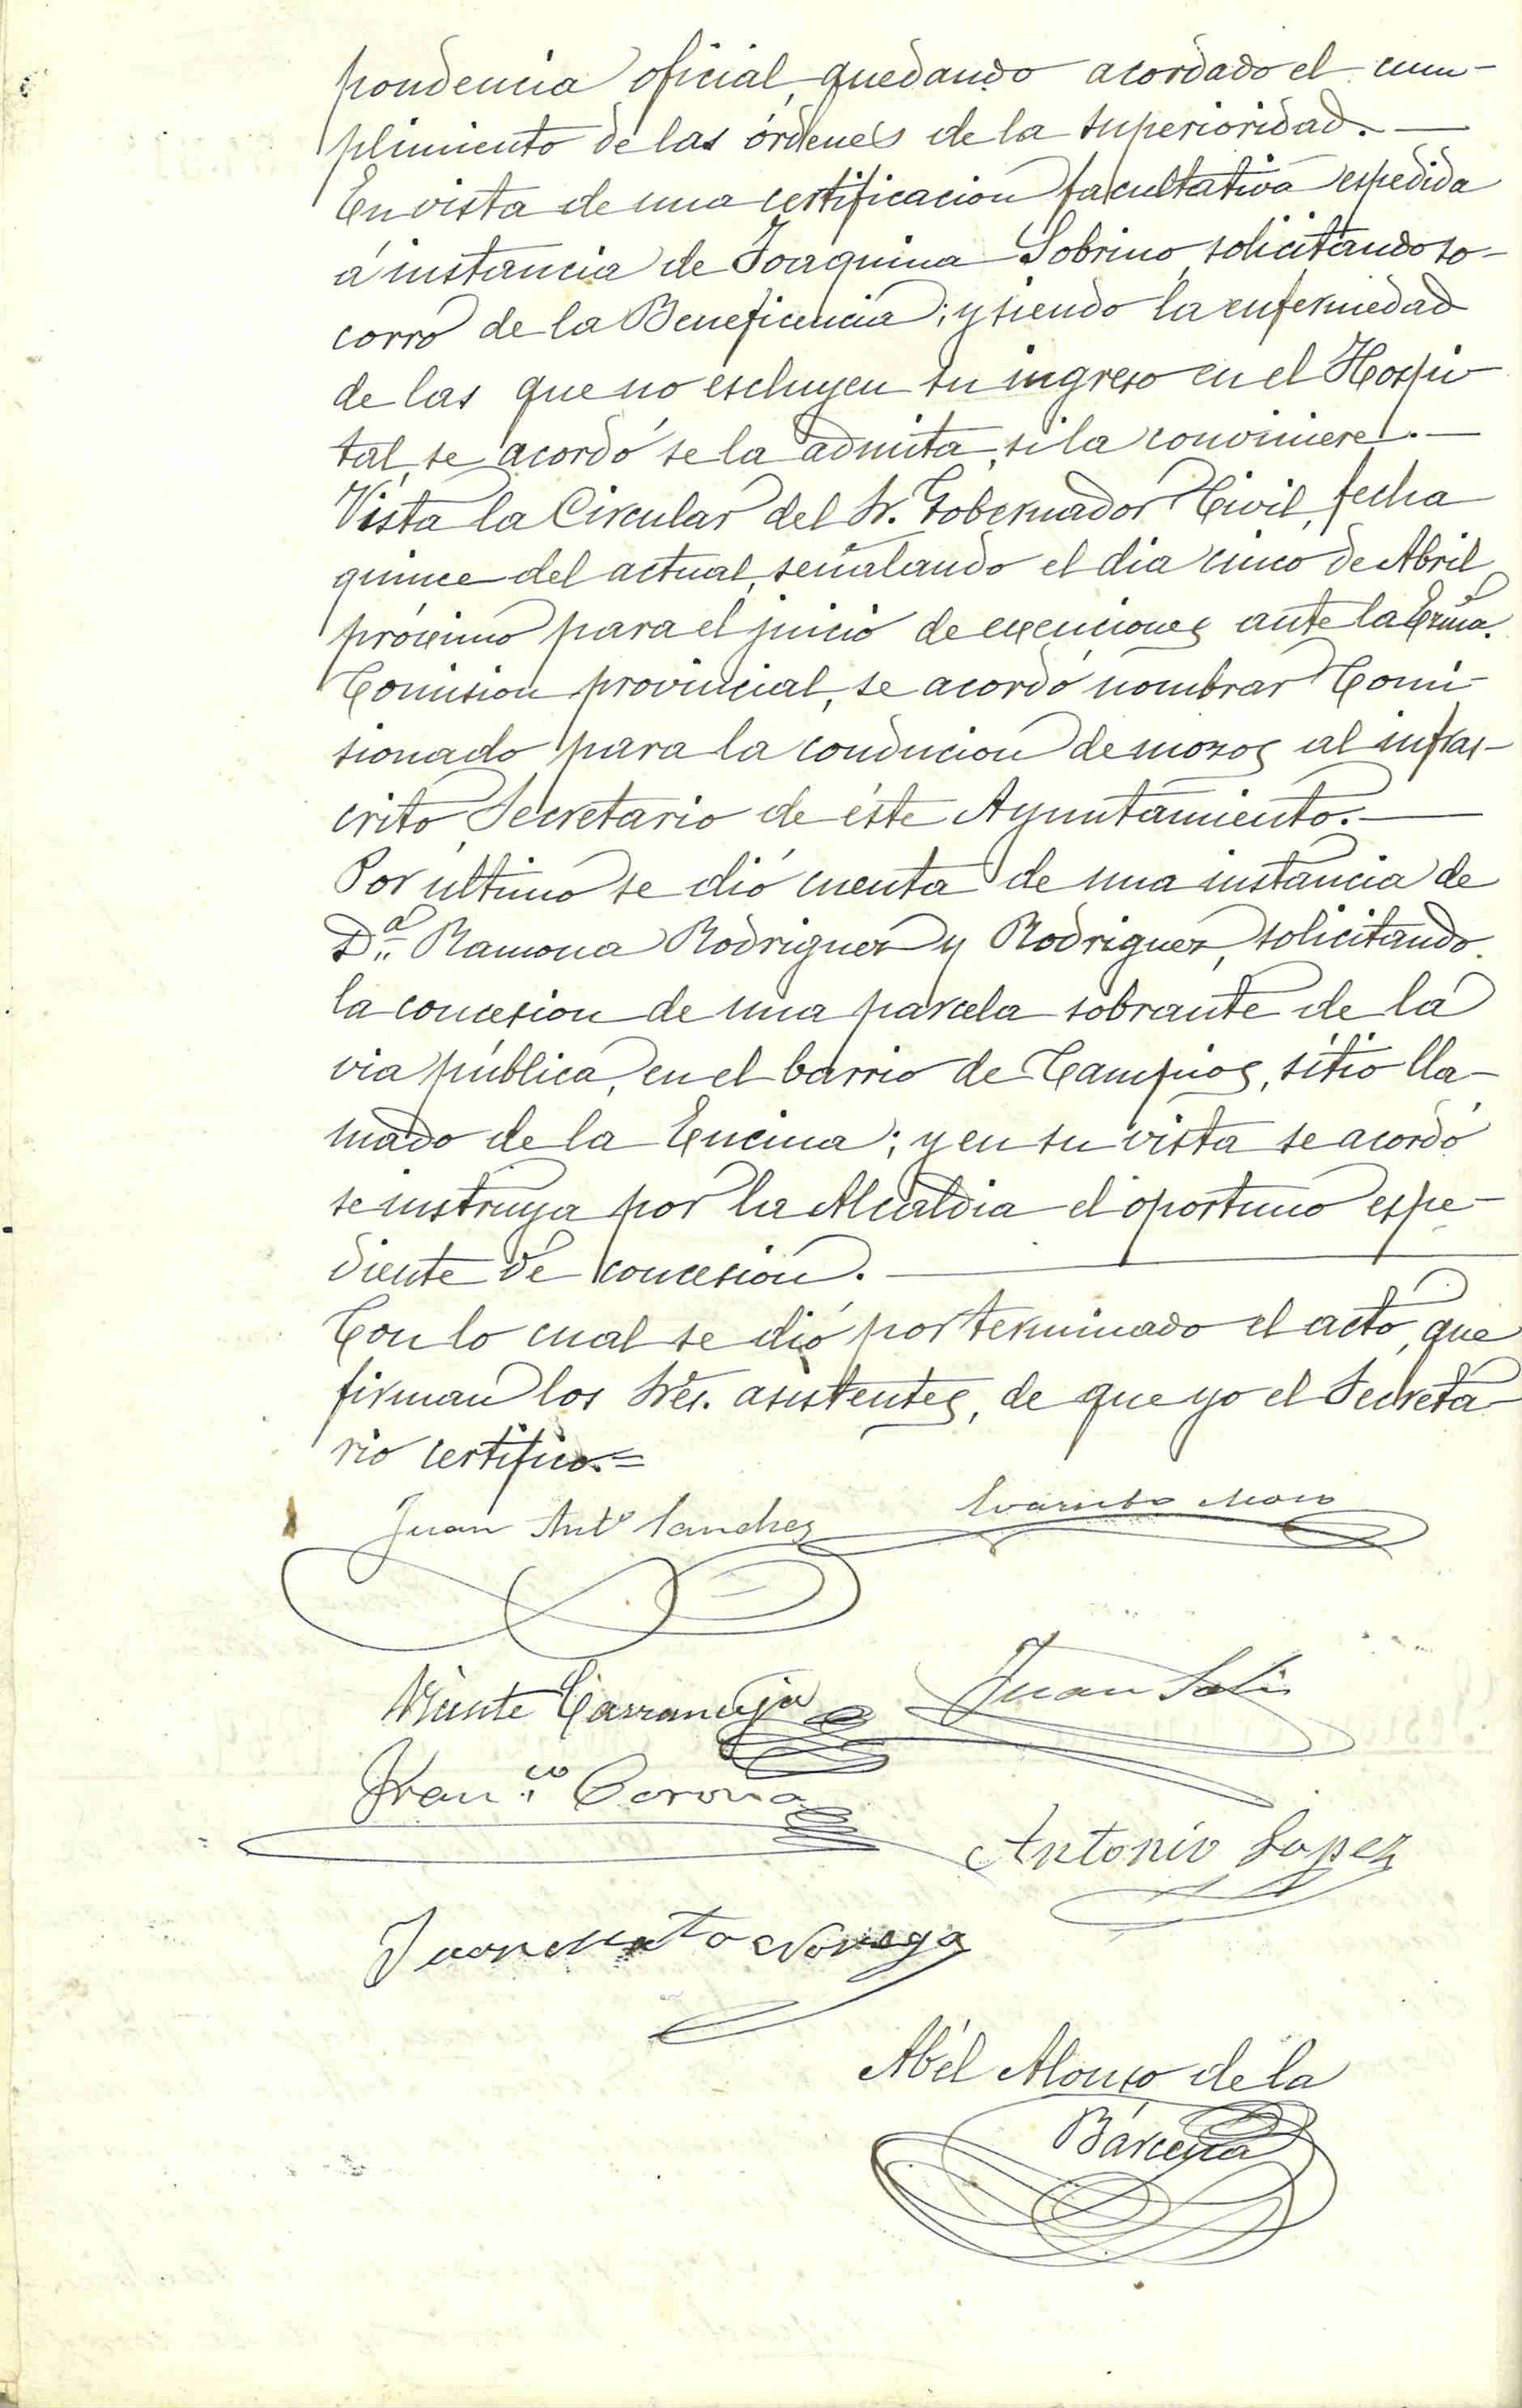 pondencia oficial, quedando acordado el cum-
plimiento de las órdenes de la superioridad.—
En vista de una certificacion facultativa espedida
á instancia de Joaquina Sobrino, solicitando so-
corro de la Beneficencia; y siendo la enfermedad
de las que no escluyen su ingreso en el Hospi-
tal, se acordó se la admita, si la conviniere.—
Vista la Circular del Sr. Gobernador Civil, fecha
quince del actual, señalando el dia cinco de Abril
próximo para el juicio de exenciones ante la Exma.
Comision provincial, se acordó nombrar Comi-
sionado para la conducion de mozos al infras-
crito Secretario de éste Ayuntamiento.—
Por último se dió cuenta de una instancia de
D.ª Ramona Rodriguez y Rodriguez, solicitando
la concesion de una parcela sobrante de la
via pública, en el barrio de Campios, sitio lla-
mado de la Encina; y en su vista se acordó
se instruya por la Alcaldia el oportuno espe-
diente de concesion.—
Con lo cual se dió por terminado el acto, que
firman los Sres. asistentes, de que yo el Secreta-
rio certifico.=
Juan Ant.º Sanchez
Evaristo Moro
Vicente Carrandi
Juan Solis
Fran.co Corona
Antonio Lopez
Juan Mato Noriega
Abél Alonso de la
Bárcena